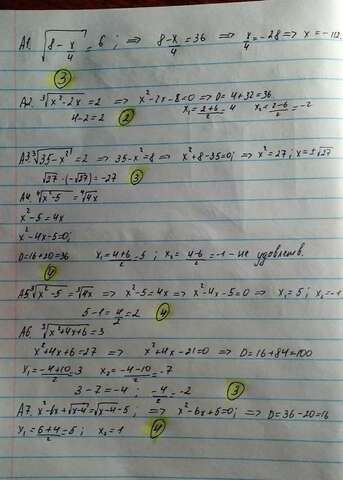 A1. √(8 - x/4) = 6 ; ⇒ 8 - x/4 = 36 ⇒ x/4 = -28 ⇒ x = -112
③
A2. ∛(x²-2x) = 2 ⇒ x²-2x-8=0 ⇒ D = 4+32=36
4-2=2 ② x₁ = (2+6)/2 = 4 x₂ = (2-6)/2 = -2
A3 ∛(35-x²) = 2 ⇒ 35-x²=8 ⇒ x²+8-35=0; ⇒ x²=27; x=±√27
√27·(-√27) = -27 ③
A4. ⁴√(x²-5) = ⁴√4x
x²-5=4x
x²-4x-5=0;
D=16+20=36 x₁ = (4+6)/2 = 5 ; x₂ = (4-6)/2 = -1 - не удовлетв.
A5 ∛(x²-5) = ∛4x ⇒ x²-5=4x ⇒ x²-4x-5=0 ⇒ x₁=5; x₂=-1
5-1=4/2=2 ④
A6 ∛(x²+4x+6) = 3
x²+4x+6=27 ⇒ x²+4x-21=0 ⇒ D=16+84=100
x₁ = (-4+10)/2 = 3 x₂ = (-4-10)/2 = -7
3-7=-4; -4/2=-2 ③
A7. x²-6x+√(x-4) = √(x-4) -5; ⇒ x²-6x+5=0; ⇒ D=36-20=16
x₁ = (6+4)/2 = 5; x₂ = 1 ④